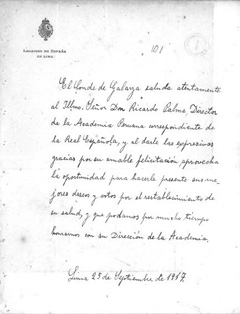 LEGACIÓN DE ESPAÑA
EN LIMA
101
El Conde de Galarza saluda atentamente
al Ilmo. Señor Don Ricardo Palma, Director
de la Academia Peruana correspondiente de
la Real Española, y al darle las expresivas
gracias por su amable felicitación aprovecha
la oportunidad para hacerle presente sus me-
jores deseos y votos por el restablecimiento de
su salud, y que podamos por mucho tiempo
honrarnos con su Dirección de la Academia.
Lima 25 de Septiembre de 1917.